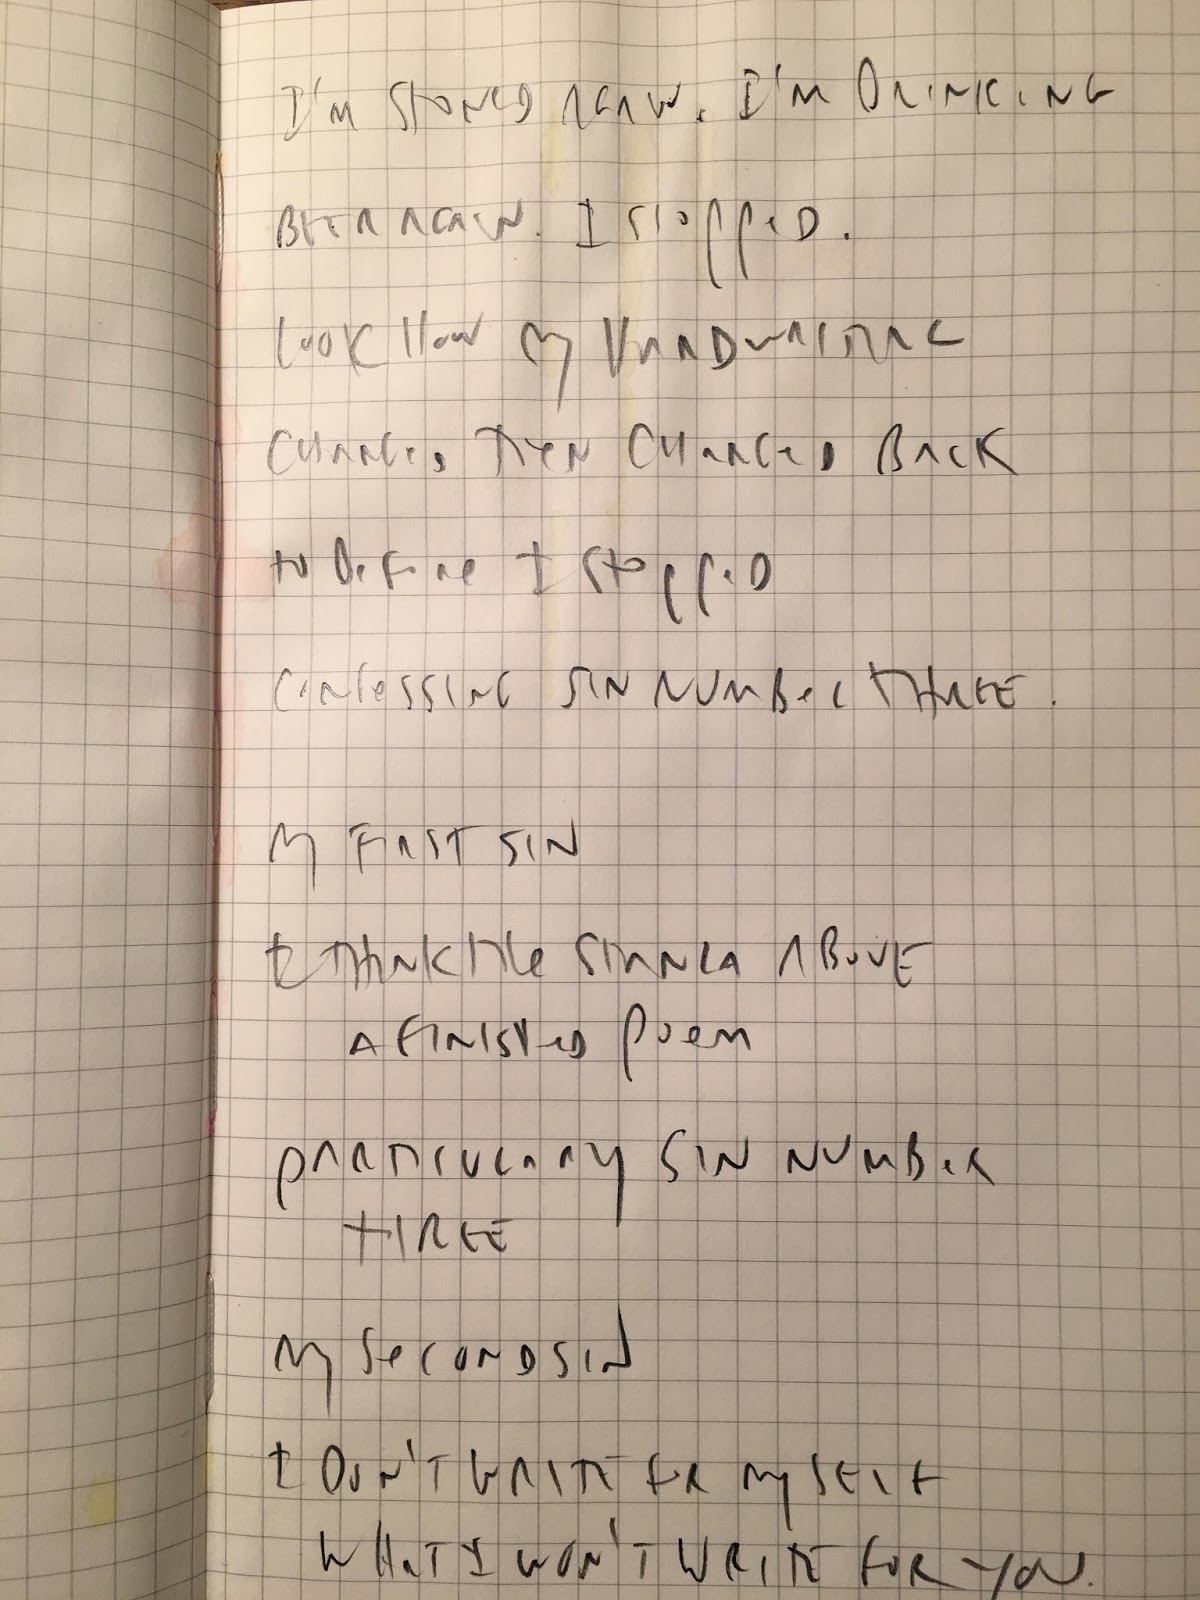 I'm stoned again. I'm drinking
beer again. I stopped.
Look how my handwriting
changes then changed back
to define I stopped
confessing sin number three.
My first sin
I think the stanza above
a finished poem
particularly sin number
three
My second sin
I don't write for myself
what I won't write for you.